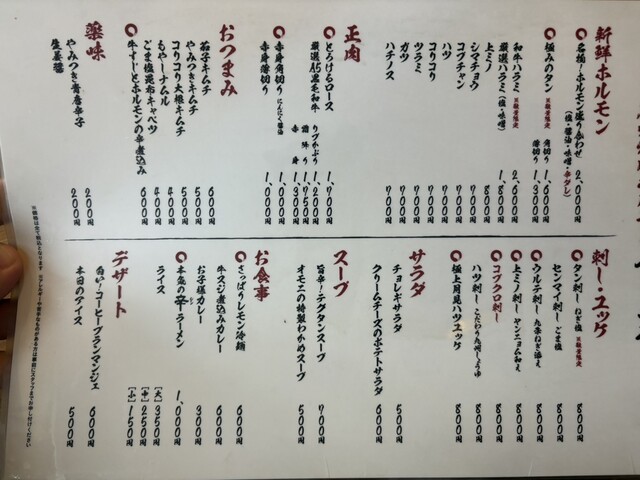 新鮮ホルモン
名物!ホルモン盛り合わせ 2,000円
(塩・醤油・味噌・辛ダレ)
極みのタン ※数量限定 角切り 1,600円
薄切り 1,300円
和牛ハラミ ※数量限定 2,600円
厳選ハラミ(塩・味噌) 1,800円
上ミノ 800円
シマチョウ 700円
コプチャン 700円
ハツ 700円
コリコリ 700円
ツラミ 700円
ガツ 700円
ハチノス 700円
正肉
とろけるロース 1,700円
厳選A5黒毛和牛 リブかぶり 1,200円
霜降り 1,750円
赤身 1,300円
赤身角切り にんにく醤油 1,000円
赤身薄切り 1,000円
おつまみ
茄子キムチ 600円
やみつきキムチ 500円
コリコリ大根キムチ 500円
もやしナムル 400円
ごま塩昆布キャベツ 400円
牛すじとホルモンの辛煮込み 600円
薬味
やみつき青唐辛子 200円
生姜醤 200円
刺し・ユッケ
タン刺し ねぎ塩 ※数量限定 800円
センマイ刺し ごま塩 800円
ウルテ刺し 九条ねぎ添え 800円
上ミノ刺し ヤンニョム和え 800円
コブクロ刺し 800円
ハツ刺し こだわり九州しょうゆ 800円
極上月見ハツユッケ 800円
サラダ
チョレギサラダ 500円
クリームチーズのポテトサラダ 600円
スープ
旨辛!テグタンスープ 700円
オモニの特製わかめスープ 500円
お食事
さっぱりレモン冷麺 600円
牛スジ煮込みカレー 600円
お子様カレー 300円
本気の辛ラーメン 1,000円
ライス [大] 350円
[中] 250円
[小] 150円
デザート
白い!コーヒーブランマンジェ 600円
本日のアイス 500円
※価格は全て税込となります ※アレルギーや苦手なものがある方は事前にスタッフまでお申し付けください